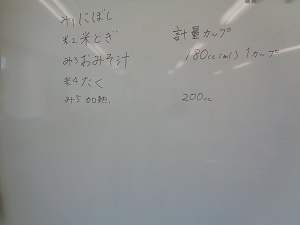 み1 にぼし
米2 米とぎ
計量カップ
み3 おみそ汁
180cc(ml) 1カップ
米4 たく
み5 加熱.
200cc